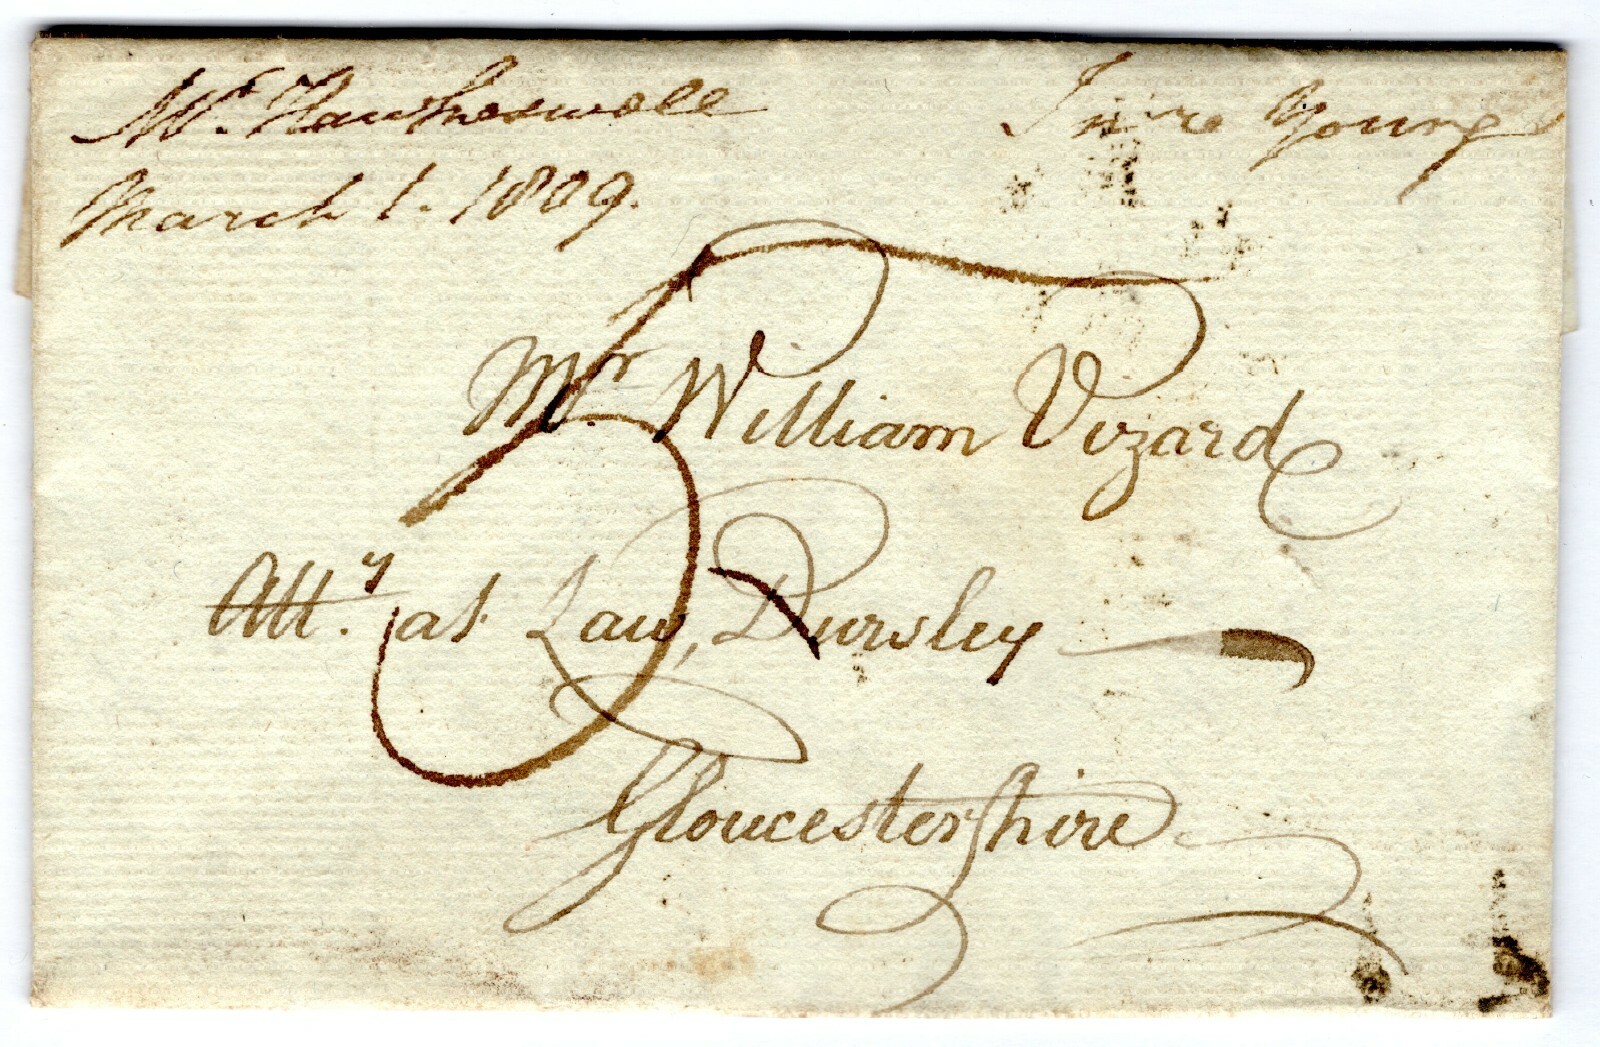 Mr. Hawkeswell
March 1. 1809.
In re Young
5
Mr. William Vizard
Atty. at Law, Dursley
Gloucestershire